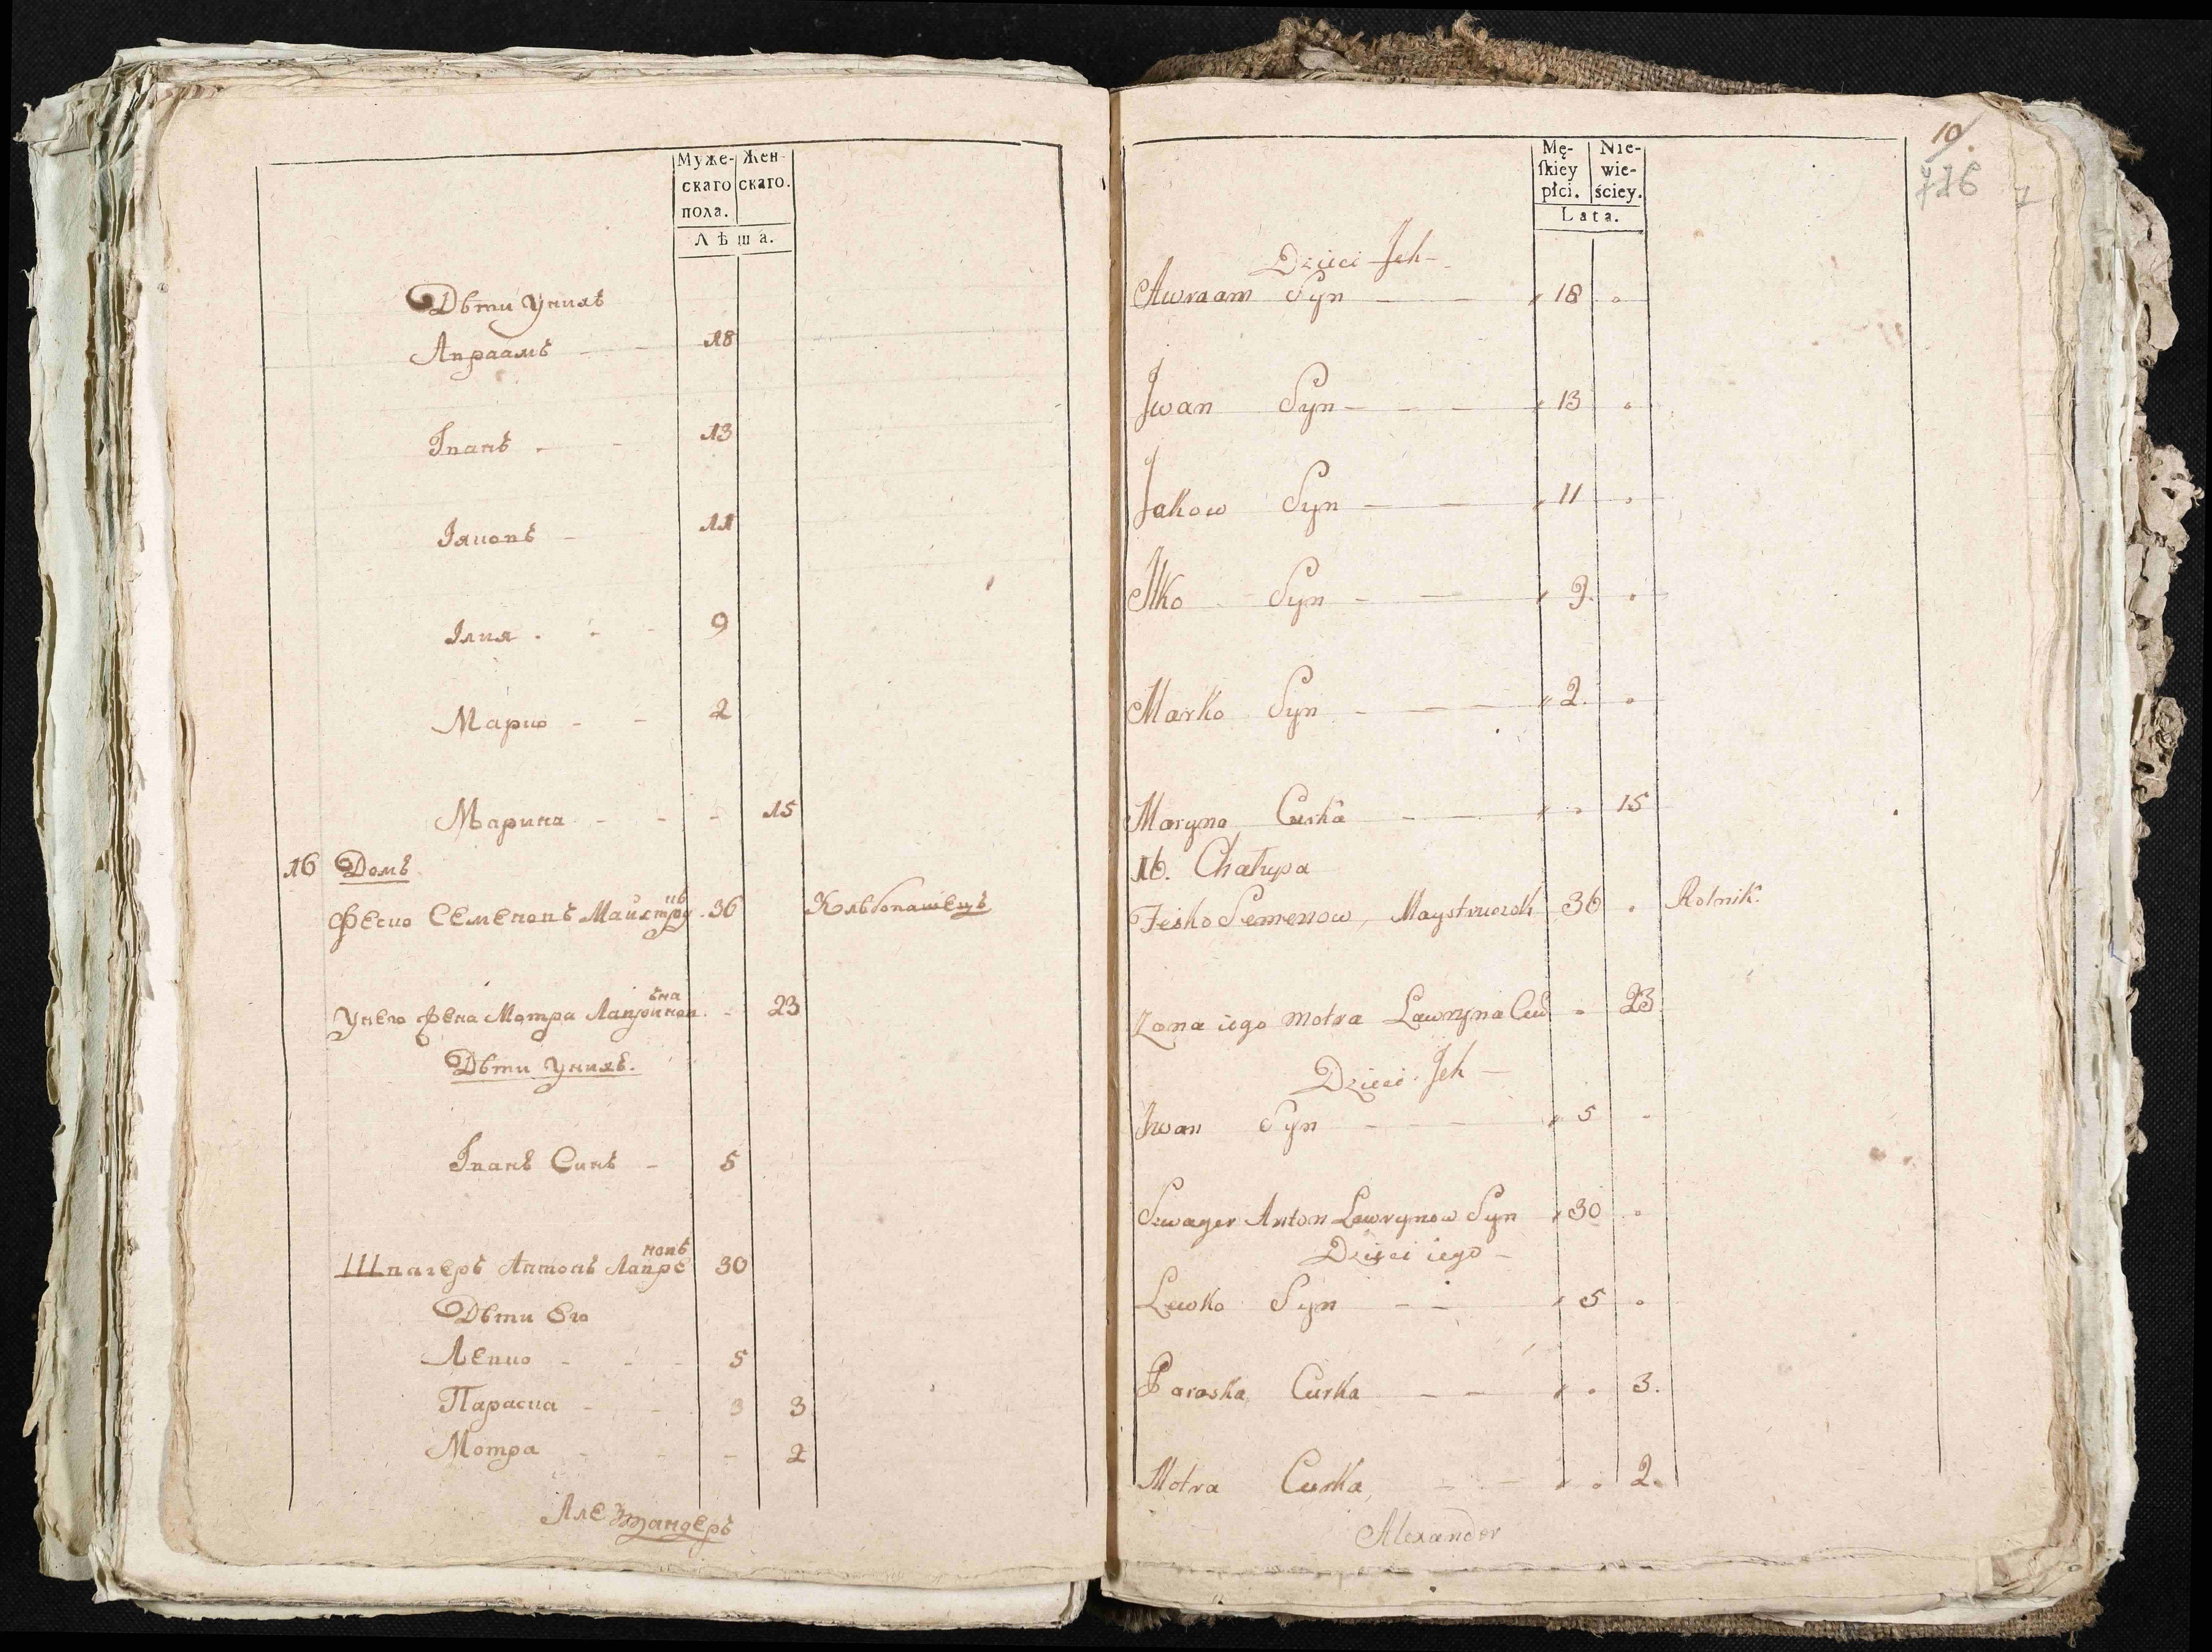 Муже- Жен-
скаго скаго.
пола.
Лѣта.
Дѣти Унихъ
Авраамъ - - 18
Іванъ - - 13
Іяковъ - 11
Ілия - - - 9
Марко - - 2
Марина - - - 15
16 Домъ
Феско Семеновъ Майстру 36 Хлѣбопашецъ
Унего жена Мотра Лаврінов ѣна - 23
Дѣти Унихъ.
Іванъ Синъ - 5
Швагеръ Антонъ Лавре новъ 30
Дѣти Его
Левко - - - 5
Параска - - 3 3
Мотра - - - 2
Александеръ
10.
716
7
Mę- Nie-
ſkiey wie-
płci. ściey.
Lata.
Dzieci Jch -
Awraam Syn - - " 18 "
Jwan Syn - - - " 13 "
Jakow Syn - - " 11 "
Ilko Syn - - " 9. "
Marko Syn - - - " 2. "
Maryna Curka - - " " 15
16. Chałupa
Fesko Semenow, Maystruczok 36 " Rolnik.
Zona iego Motra Lawryna Cur " 23.
Dzieci Jch -
Jwan Syn - - - " 5 "
Szwager Anton Lawrynow Syn " 30 "
Dzieci iego -
Lewko Syn - - " 5 "
Paraska Curka - - " " 3.
Motra Curka, - - " " 2.
Alexander